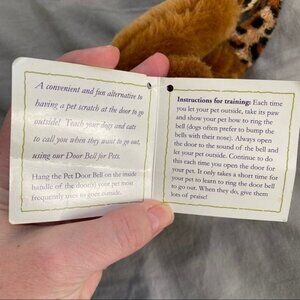 A convenient and fun alternative to
having a pet scratch at the door to go
outside! Teach your dogs and cats
to call you when they want to go out,
using our Door Bell for Pets.
Hang the Pet Door Bell on the inside
handle of the door(s) your pet most
frequently uses to goes outside.
Instructions for training: Each time
you let your pet outside, take its paw
and show your pet how to ring the
bell (dogs often prefer to bump the
bells with their nose). Always open
the door to the sound of the bell and
let your pet outside. Continue to do
this each time you open the door for
your pet. It only takes a short time for
your pet to learn to ring the door bell
to go out. When they do, give them
lots of praise!